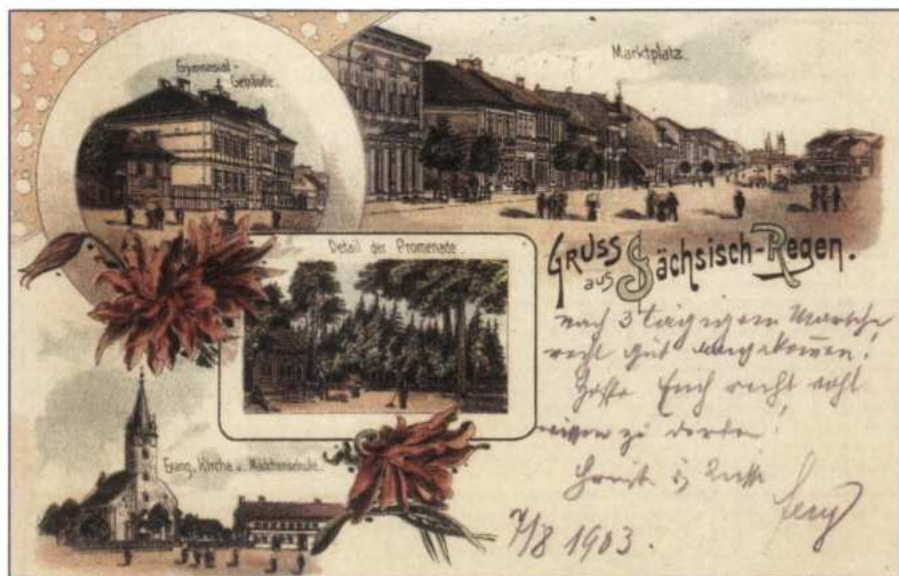 Gymnasial-
Gebäude.
Marktplatz.
Detail der Promenade.
GRUSS
aus Sächsisch-Regen.
nach 3 tägigem Marsche
recht gut angekommen!
Hoffe Euch recht wohl
wissen zu dürfen!
Evang. Kirche u. Mädchenschule.
7/8 1903.